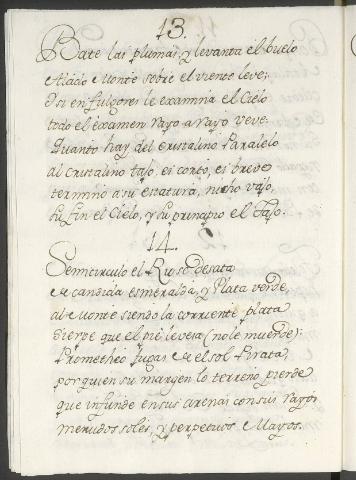 13.
Bate las plumas, y levanta el buelo
Alado Monte sobre el viento leve;
I si en fulgores le examina el Cielo
todo el examen rayo a rayo veve:
Quanto hay del cristalino Paralelo
al cristalino tajo, es corto, es breve
termino a su estatura, nicho vajo,
su fin el Cielo, y su principio el Tajo.
14.
Semicirculo el Rio se desata
de candida esmeralda, y Plata verde,
al Monte siendo la corriente plata
sierpe que el pie le vesa (no le muerde):
Prometheo fugaz de el sol Pirata,
por quien su margen lo terreno pierde
que infunde en sus arenas con sus rayos
menudos soles, y perpetuos Mayos.